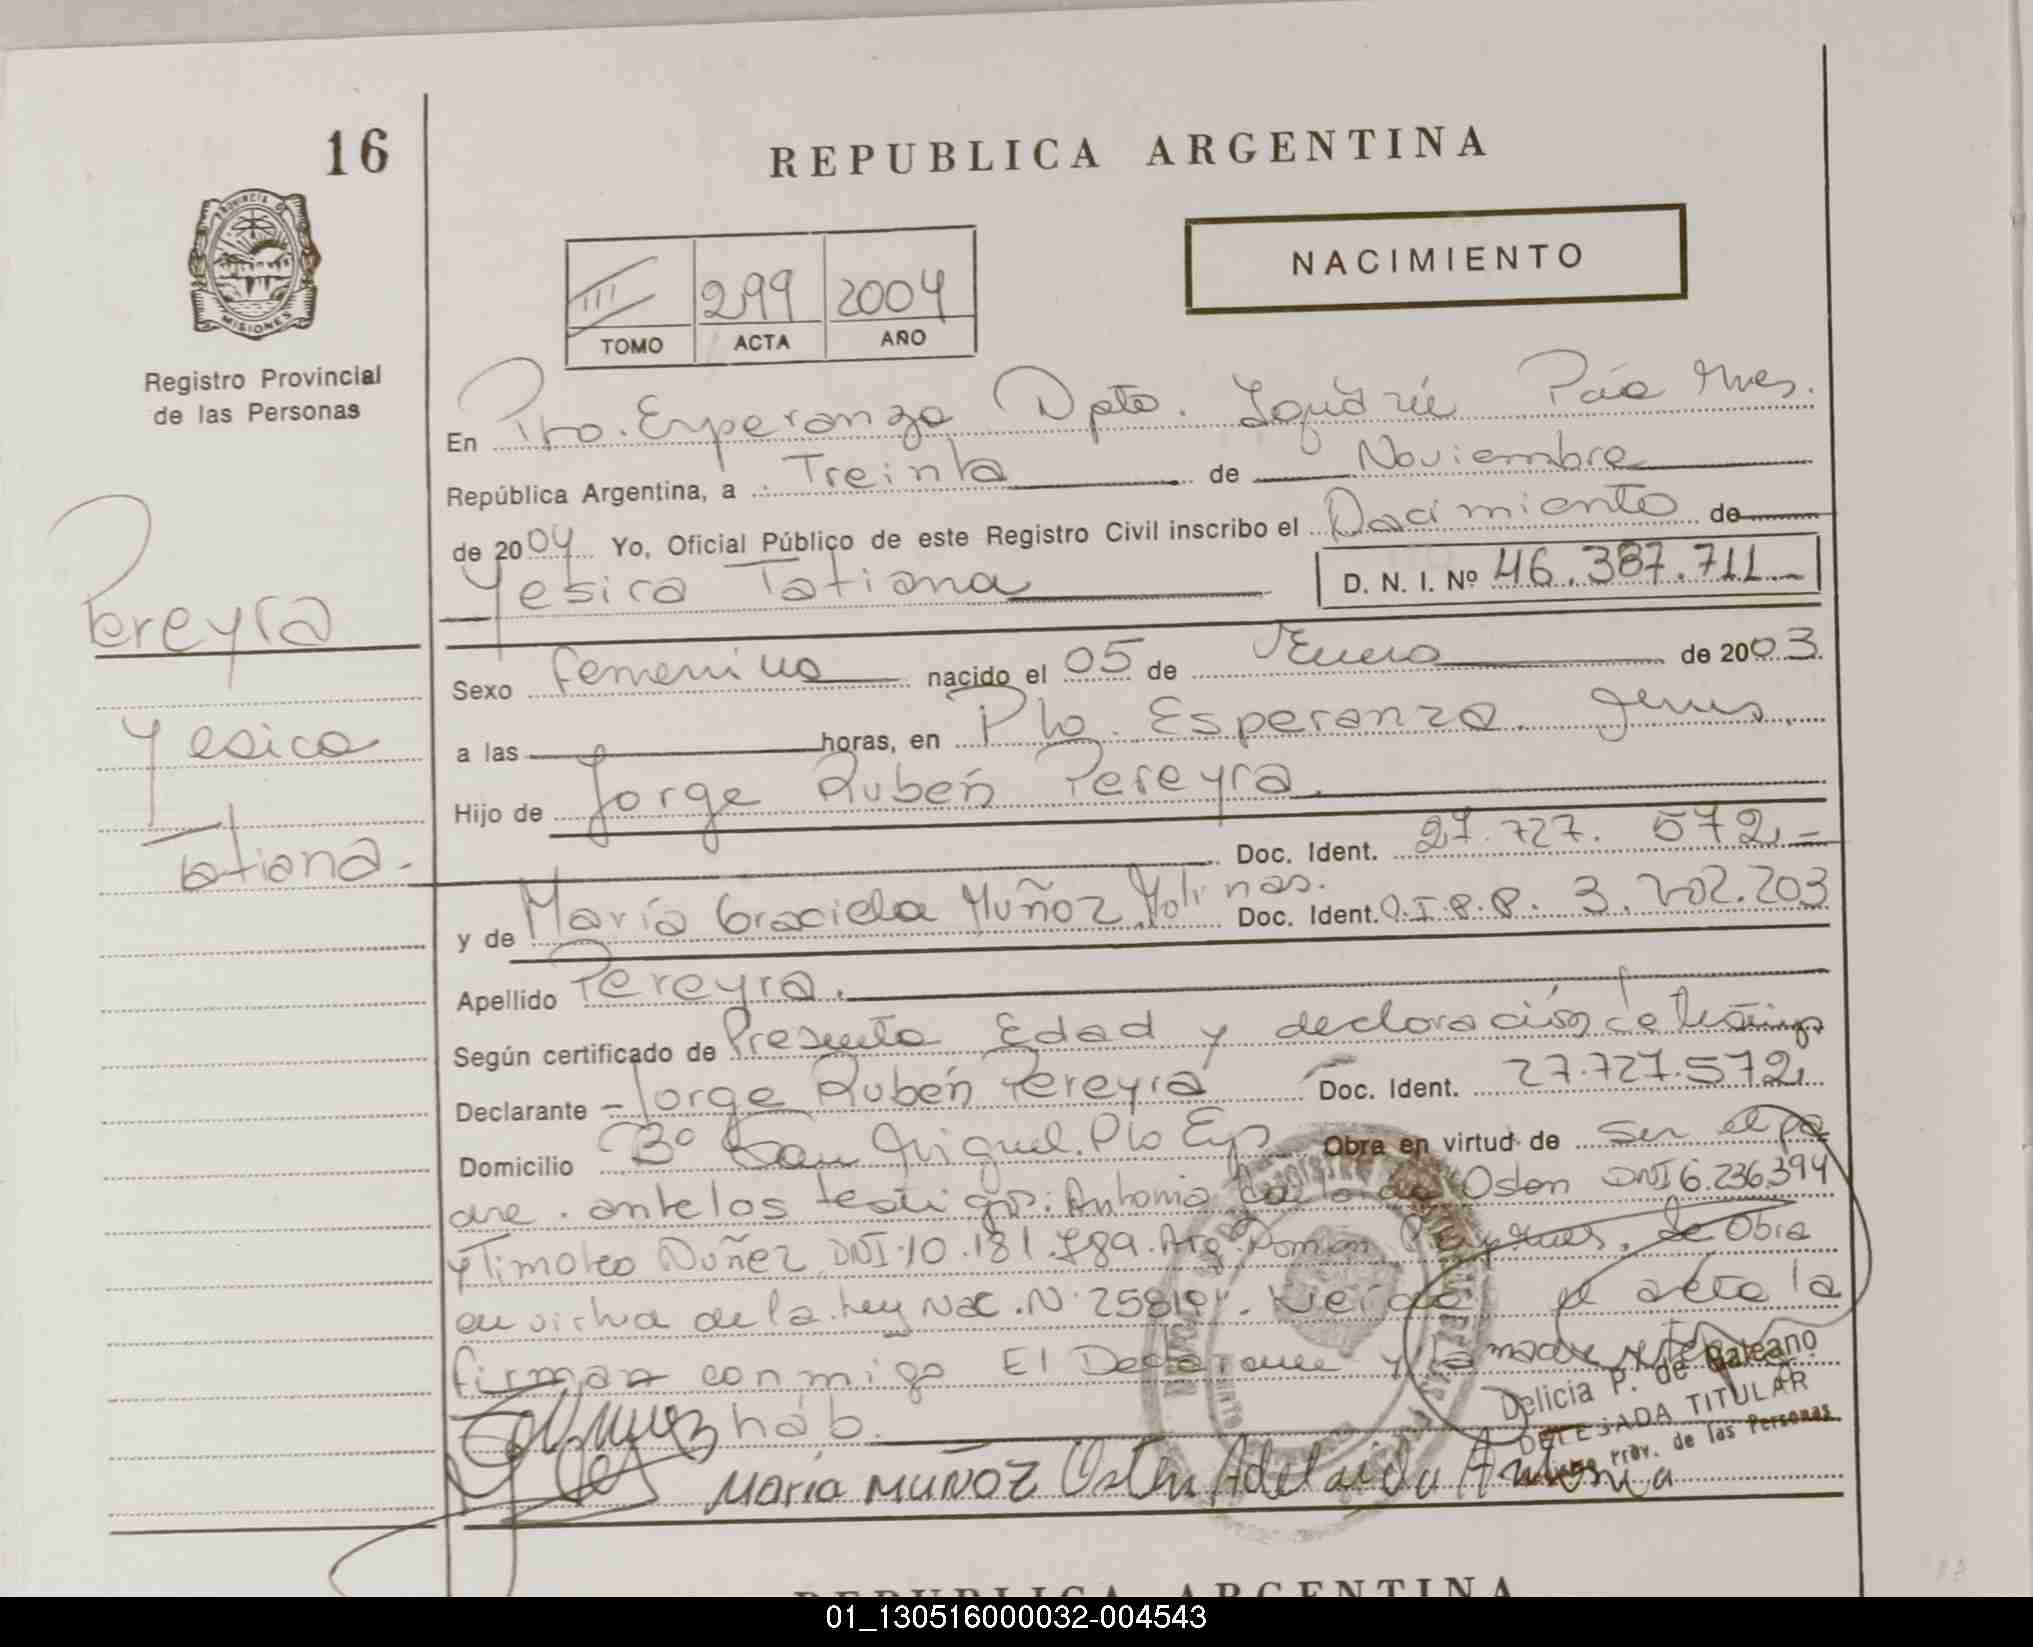 16
REPUBLICA ARGENTINA
PROVINCIA DE
MISIONES
Registro Provincial
de las Personas
NACIMIENTO
III 299 2004
TOMO ACTA AÑO
Pereyra
Yesica
Tatiana.-
En Pto. Esperanza Dpto. Iguazú Pcia Mnes.
República Argentina, a Treinta de Noviembre
de 2004 Yo, Oficial Público de este Registro Civil inscribo el Nacimiento de
Yesica Tatiana D. N. I. Nº 46.387.711
Sexo femenino nacido el 05 de Enero de 2003
a las horas, en Pto. Esperanza
Hijo de Jorge Rubén Pereyra.
Doc. Ident. 27.727.572
y de María Graciela Muñoz Molinas. Doc. Ident. 3.202.203
Apellido Pereyra.
Según certificado de Presunta Edad y declaración de testigos
Declarante - Jorge Rubén Pereyra Doc. Ident. 27.727.572
Domicilio Bº San Miguel. Pto Esp Obra en virtud de ser el pa
dre. ante los testigos: Antonia de Osten DNI 6.236.394
y Timoteo Nuñez DNI 10.181.789. Arg.
en virtud de la Ley Nac. N 25819. Leida el acta la
firman conmigo El Declarante y la madre
háb.
Delicia P. de Galeano
DELEGADA TITULAR
Prov. de las Personas
María MUÑOZ Osten Adelaida Antonia
REPUBLICA ARGENTINA
01_130516000032-004543